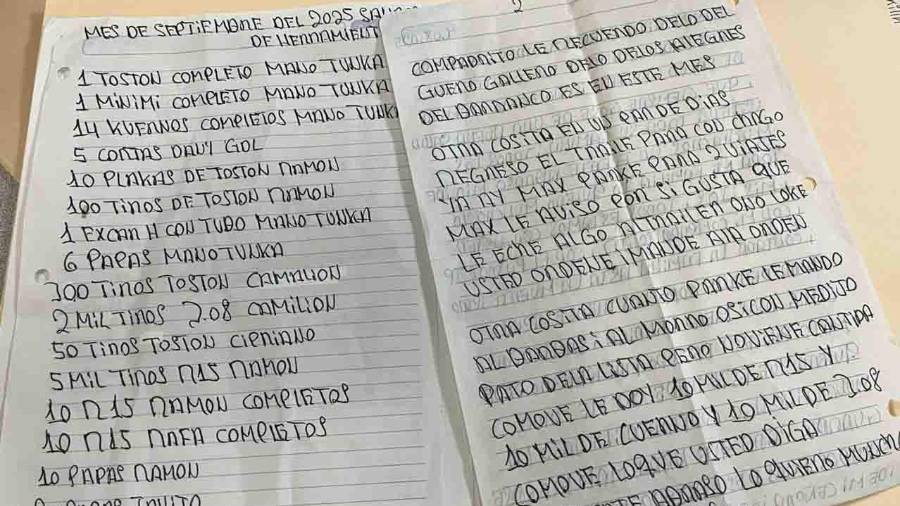 MES DE SEPTIEMBRE DEL 2025
DE HERRAMIENT
1 TOSTON COMPLETO MANO TUNKA
1 MINIMI COMPLETO MANO TUNKA
14 KUERNOS COMPLETOS MANO TUNK
5 CORTAS DAVI GOL
10 PLAKAS DE TOSTON RAMON
100 TIROS DE TOSTON RAMON
1 EXCAR H CON TUBO MANO TUNKA
6 PAPAS MANO TUNKA
300 TIROS TOSTON CAMALION
2 MIL TIROS 2.08 CAMILION
50 TIROS TOSTON CIPRIANO
5 MIL TIROS R15 RAMON
10 R15 RAMON COMPLETOS
10 R15 RAFA COMPLETOS
10 PAPAS RAMON
2
COMPADRITO LE RECUERDO DELO DEL
GUERO GALLERO DELO DELOS ALEGRES
DEL BARRANCO ES EN ESTE MES
OTRA COSITA EN UN PAR DE DIAS
REGRESO EL TRAILE PARA COD CHAGO
YA AY MAX PARKE PARA 2 VIAJES
MAX LE AVISO POR SI GUSTA QUE
LE ECHE ALGO AL TRAILER ORO LOKE
USTED ORDENE I MANDE ALA ORDEN
OTRA COSITA CUANTO PARKE LE MANDO
AL BARBAS I AL MORRO OSI CON MEDITO
PATO DELA LISTA PERO NO VIENE CANTIDA
COMOVE LE DOY 10 MIL DE R15 Y
10 MIL DE CUERNO Y 10 MIL DE 2.08
COMOVE LOQUE USTED DIGA
ABRASO LO QUIERO MUCHO